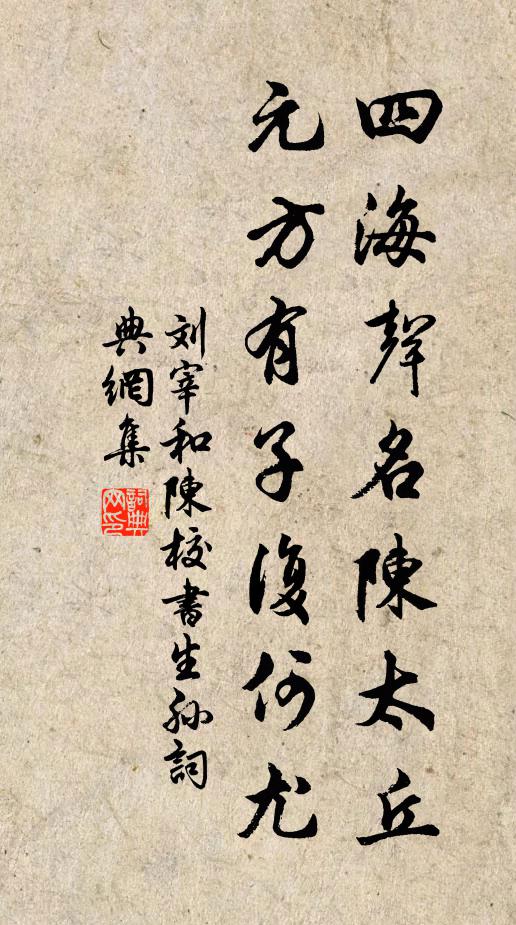 四海聲名陳太丘
元方有子復何尤
刘宰和陳校書生孫詞
典網集
詞典
网印